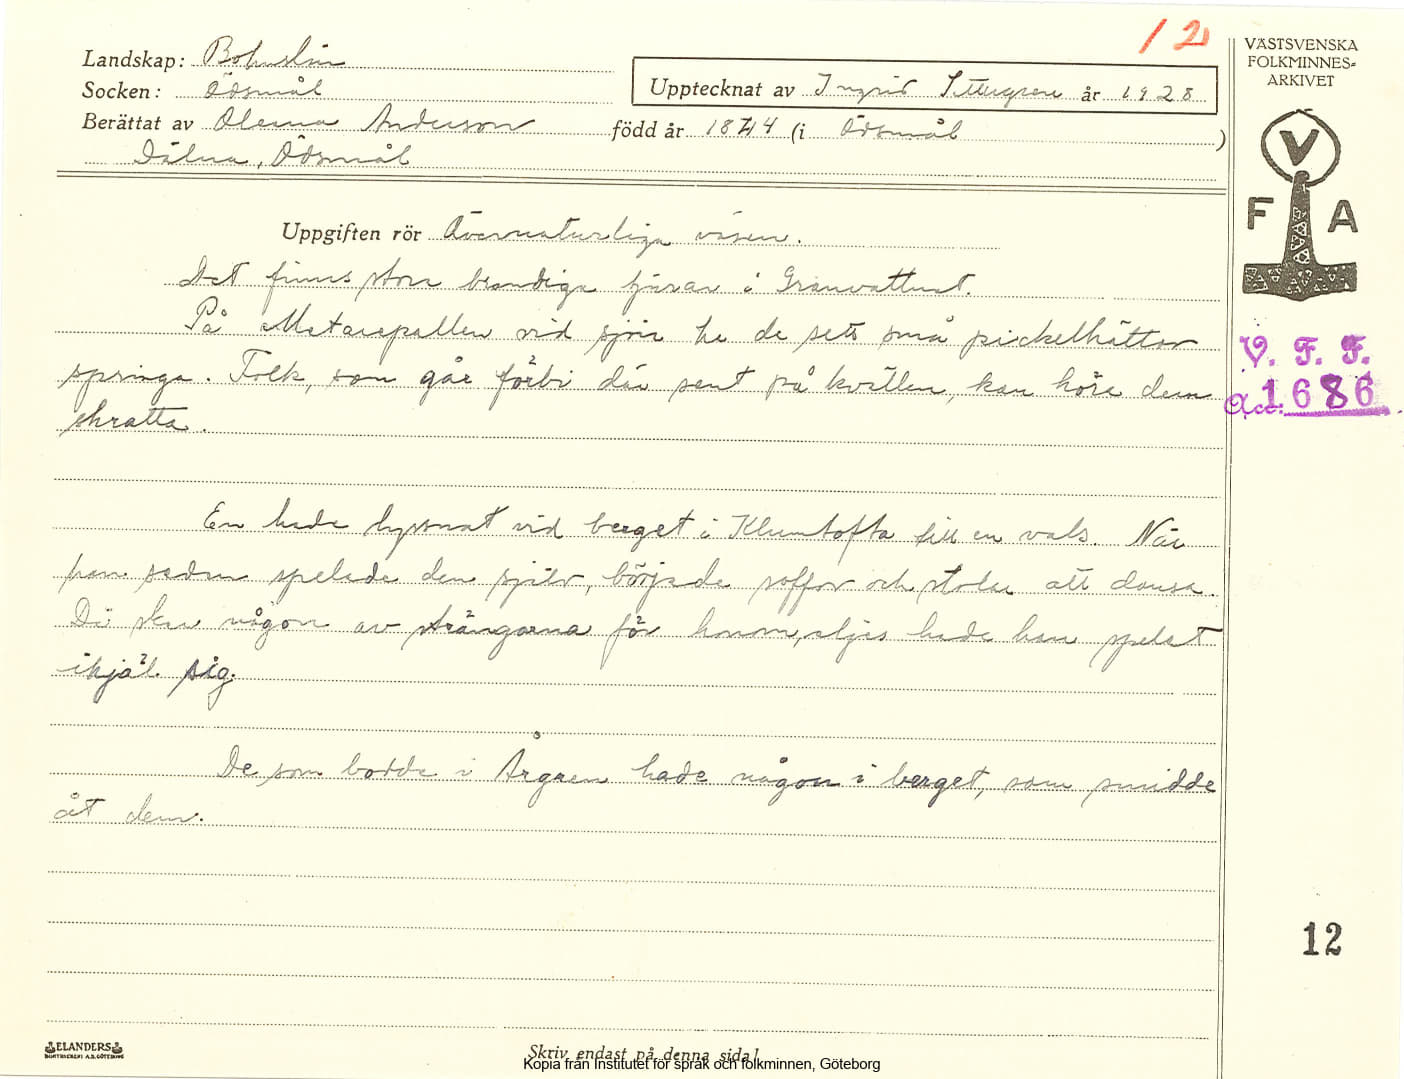 12
VÄSTSVENSKA
FOLKMINNES-
ARKIVET
Landskap: Bohuslän
Socken: Ödsmål
Upptecknat av Ingrid år 1928
Berättat av Olema Anderson född år 1844 (i Ödsmål)
Ödsmål
V
F A
Uppgiften rör Övernaturliga väsen.
Det finns stora brandiga tjurar i Granvattnet.
På vid sjön ha de sett små pickelhättor
springa. Folk, som går förbi där sent på kvällen, kan höra dem
skratta.
V. F. F.
Acc: 1686
En hade lyssnat vid berget i Klumtofta till en vals. När
han sedan spelade den själv, började soffor och stolar att dansa.
Då skar någon av strängarna för honom, aljes hade han spelat
ihjäl sig.
De som bodde i Årgren hade någon i berget, som smidde
åt dem.
12
ELANDERS
BOKTRYCKERI A.B. GÖTEBORG
Skriv endast på denna sida!
Kopia från Institutet för språk och folkminnen, Göteborg